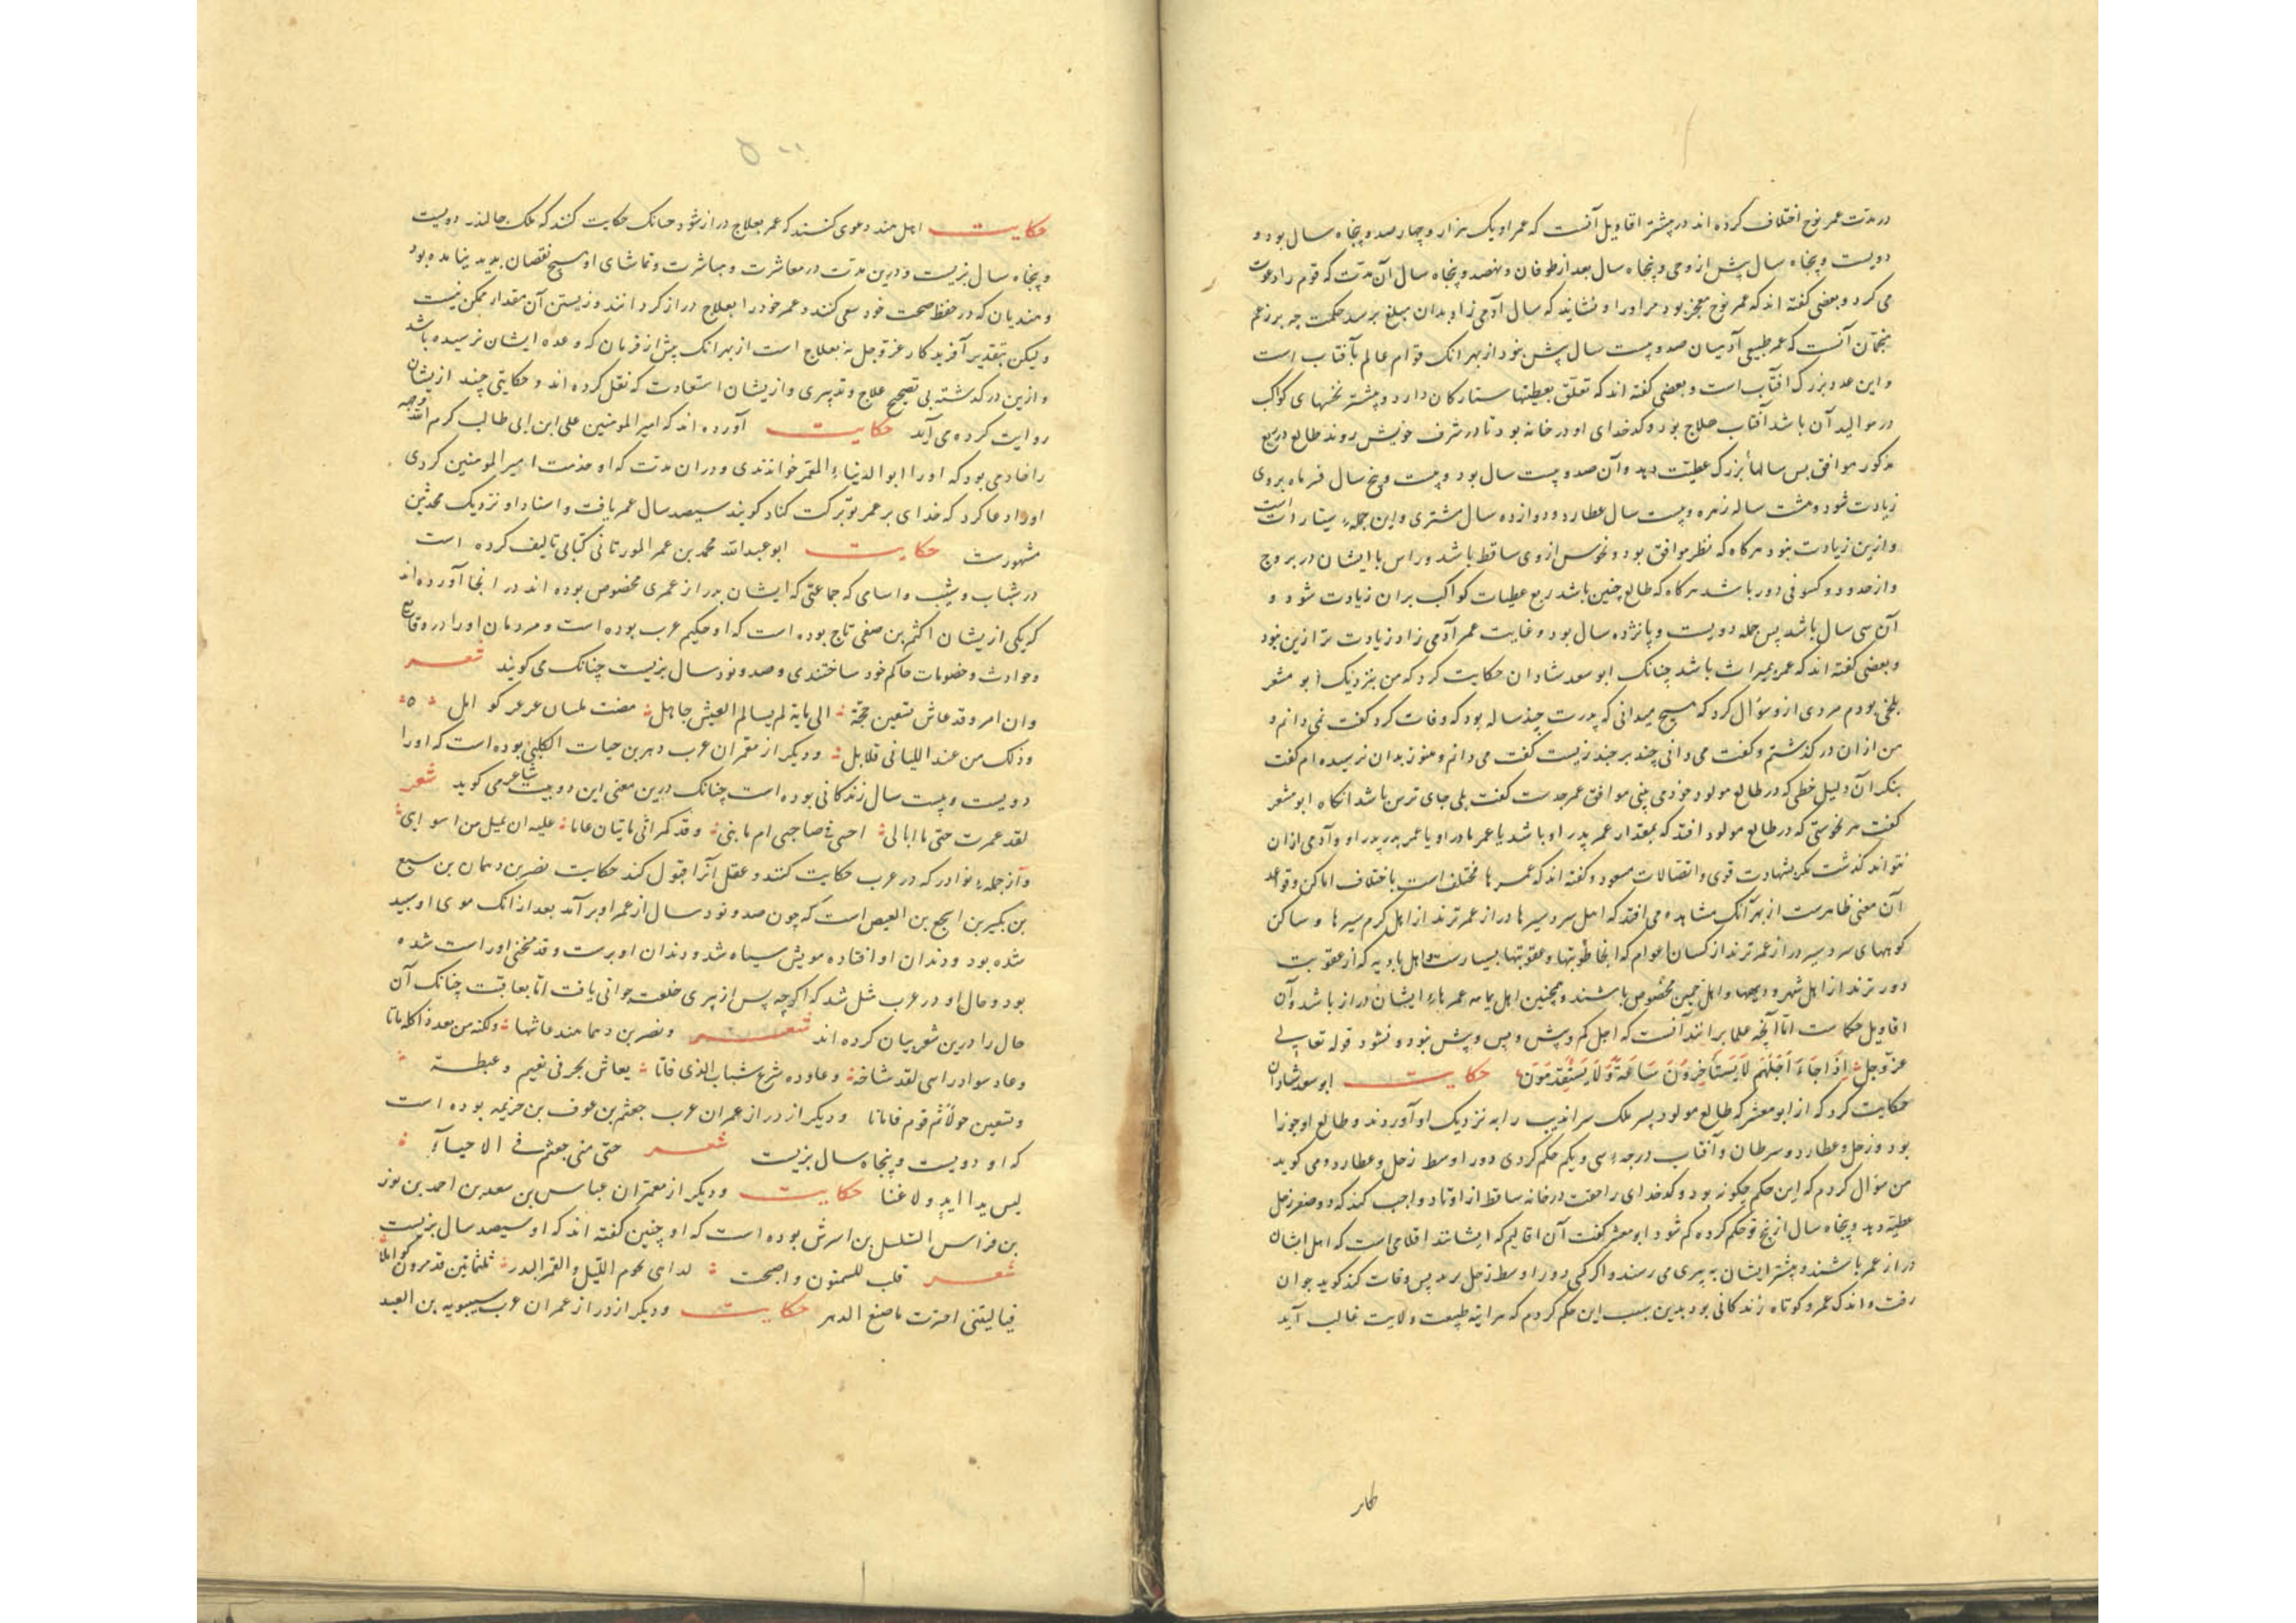 در مدت عمر نوح اختلاف کرده اند در پیشتر اقاویل آنست که عمر او یک هزار و چهار صد و پنجاه سال بود و
دویست و پنجاه سال پیش از وحی و پنجاه سال بعد از طوفان و نهصد و پنجاه سال آن مدت که قوم را دعوت
می کرد و بعضی کفته اند که عمر نوح معجز بود مر او را و نشاید که سال آدمی زاد بدان مبلغ برسد حکمت چه بر زعم
منجمان آنست که عمر طبیعی آدمیان صد و بیست سال بیش نبود از بهر انک قوام عالم بآفتاب است
و این عدد بزرک آفتاب است و بعضی کفته اند که تعلق بعطیتها ستارکان دارد و پیشتر بخشهای کواکب
در موالید آن باشد آفتاب هلاج بود و کدخدای او در خانه بود تا در شرف خویش روند طالع در ربع
مذکور موافق پس سالها بزرک عطیت دهد و آن صد و بیست سال بود و بیست و پنج سال قمر ماه بروی
زیادت شود و هشت ساله زهره و بیست سال عطارد و دوازده سال مشتری و این جمله است
و ازین زیادت نبود هر کاه که نظر موافق بود و نحوس از وی ساقط باشد و راس با ایشان در بروج
و از حدود و کسوفی دور باشد هر کاه که طالع چنین باشد ربع عطیات کواکب بران زیادت شود و
آن سی سال باشد پس جمله دویست و پانزده سال بود و غایت عمر آدمی زاد زیادت تر ازین نبود
و بعضی کفته اند که عمر بمیراث باشد چنانک ابو سعد شادان حکایت کرد که من بنزدیک ابو معشر
بلخی بودم مردی ازو سؤال کرد که هیچ میدانی که پدرت چند ساله بود که وفات کرد کفت نمی دانم و
من از ان در کذشتم و کفت می دانی چند بر جند زیست کفت می دانم و هنوز بدان نرسیده ام کفت
بنکر آن دلیل خطی که در طالع مولود خود می بینی موافق عمر جدست کفت بلی جای ترس باشد انکاه ابو معشر
کفت هر نحوستی که در طالع مولود افتد که بمقدار عمر پدر او باشد یا عمر مادر او یا عمر پدر پدر او و آدمی ازان
نتواند کذشت مکر بشهادت قوی و اتصالات مسعود و کفته اند که عمرها مختلف است باختلاف اماکن و قواعد
آن معنی ظاهرست از بهر آنک مشاهده می افتد که اهل سردسیرها دراز عمر ترند از اهل کرم سیرها و ساکن
کوههای سردسیر دراز عمر ترند از کسان اعوام که انجا طوبتها و عقوبتها بسیارست و اهل بادیه که از عقوبت
دور ترند از اهل شهر و دیهها و اهل چین مخصوص باشند و همچنین اهل یمامه عمر هاء ایشان دراز باشد و آن
اقاویل حکماست اما آنچه علما برانند آنست که اجل کم و بیش و پس و پیش نبود و نشود قوله تعالی
عز و جل اِذَا جَاءَ اَجَلُهُم لَا يَستَأخِرُونَ سَاعَةً وَلَا يَستَقدِمُونَ حکایت ابو سعد شادان
حکایت کرد که از ابو معشر که طالع مولود پسر ملک سراندیب را به نزدیک او آوردند و طالع او جوزا
بود و زحل و عطارد و سرطان و آفتاب درجهء سی و یکم حکم کردی دور اوسط زحل و عطارد و می کوید
من سؤال کردم که این حکم چکونه بود و کدخدای را حقت در خانه ساقط از اوتاد واجب کند که دور صغر زحل
عطیت دهد و پنجاه سال از نج تو حکم کرده کم شود ابو معشر کفت آن اقالیم که ایشانند اقلامی است که اهل ایشان
دراز عمر باشند و پیشتر ایشان به پیری می رسند و اکر کی دور اوسط زحل رسد پس وفات کند کوید جوان
رفت و اندک عمر و کوتاه زندکانی بود بدین سبب این حکم کردم که هر اینه طبیعت ولایت غالب آید
حکایت اهل هند دعوی کنند که عمر بعلاج دراز شود چنانک حکایت کنند که ملک جالندر دویست
و پنجاه سال بزیست و درین مدت در معاشرت و مباشرت و تماشای او هیچ نقصان پدید نیامده بود
و هندیان که در حفظ صحت خود سعی کنند و عمر خود را بعلاج دراز کردانند و زیستن آن مقدار ممکن نیست
و لیکن بتقدیر آفریدکار عز و جل نه بعلاج است از بهر انک پیش از فرمان که وعده ایشان نرسیده باشد
و ازین در کذشته بی تصحیح علاج و تدبیری و از یشان استعادت که نقل کرده اند و حکایتی چند ازیشان
روایت کرده می آید حکایت آورده اند که امیر المومنین علی ابن ابی طالب کرم الله وجهه
را خادمی بود که او را ابو الدنیاء المعمر خواندندی و دران مدت که او خدمت امیر المومنین کردی
او را دعا کرد که خدای بر عمر تو برکت کناد کویند سیصد سال عمر یافت و اسناد او نزدیک محدثین
مشهورست حکایت ابو عبدالله محمد بن عمر المورتانی کتابی تالیف کرده است
در شباب و شیب و اسامی که جماعتی که ایشان بدراز عمری مخصوص بوده اند در انجا آورده اند
که یکی ازیشان اکثم بن صفی تاج بوده است که او حکیم عرب بوده است و مردمان او را در وقایع
و حوادث و خصومات حاکم خود ساختندی و صد و نود سال بزیست چنانک می کویند شعر
وان امر وقد عاش تسعین حجة الی مایة لم یسالم العیش جاهل مضت اهل
وذلک من عند اللیالی قلایل و دیکر از معمران عرب دهر بن حیات الکلبی بوده است که او را
دویست و بیست سال زندکانی بوده است چنانک درین معنی این دو بیت شاعر می کوید شعر
لقد عمرت حتی ما ابالی احتی فی صباحی ام مابنی وقد کمراتی مایتان عاما علیه ان یمیل من اسوای
و از جملهء نوادر که در عرب حکایت کنند و عقل آنرا قبول کند حکایت نضر بن دهمان بن سبیع
بن بکیر بن ابجع بن العیص است که چون صد و نود سال از عمر او بر آمد بعد از انک موی او سپید
شده بود و دندان او افتاده مویش سیاه شد و دندان او برست و قد منحنی او راست شده
بود و حال او در عرب مثل شد که اکرچه پس از پیری خلعت جوانی یافت اما بعاقبت چنانک آن
حال را درین شعر بیان کرده اند شعر ونصر بن دهما هند عاشها ولکنه من بعد ذاکله ماتا
وعاد سوادراسی لقد شاخه وعاوده شرع شباب الذی فاتا یعاش بحر فی نعیم وغبطة
وتسعین حولاً ثم قوم فاماتا و دیکر از دراز عمران عرب جعثم بن عوف بن خزیمه بوده است
که او دویست و پنجاه سال بزیست شعر حتی متی جعثم فی الاحیاء
لیس یدا اید ولا غنا حکایت و دیکر از معمران عباس بن سعد بن احمد بن نوز
بن فراس بن اسرش بوده است که او چنین کفته اند که او سیصد سال بزیست
شعر قلب للسمنون واصبحت لدای نجوم اللیل والقمر البدر ثلثمایتین قد مرون کواملا
فیا لیتنی احترت ما صنع الدهر حکایت و دیکر از دراز عمران عرب سیبویه بن العبد
طار